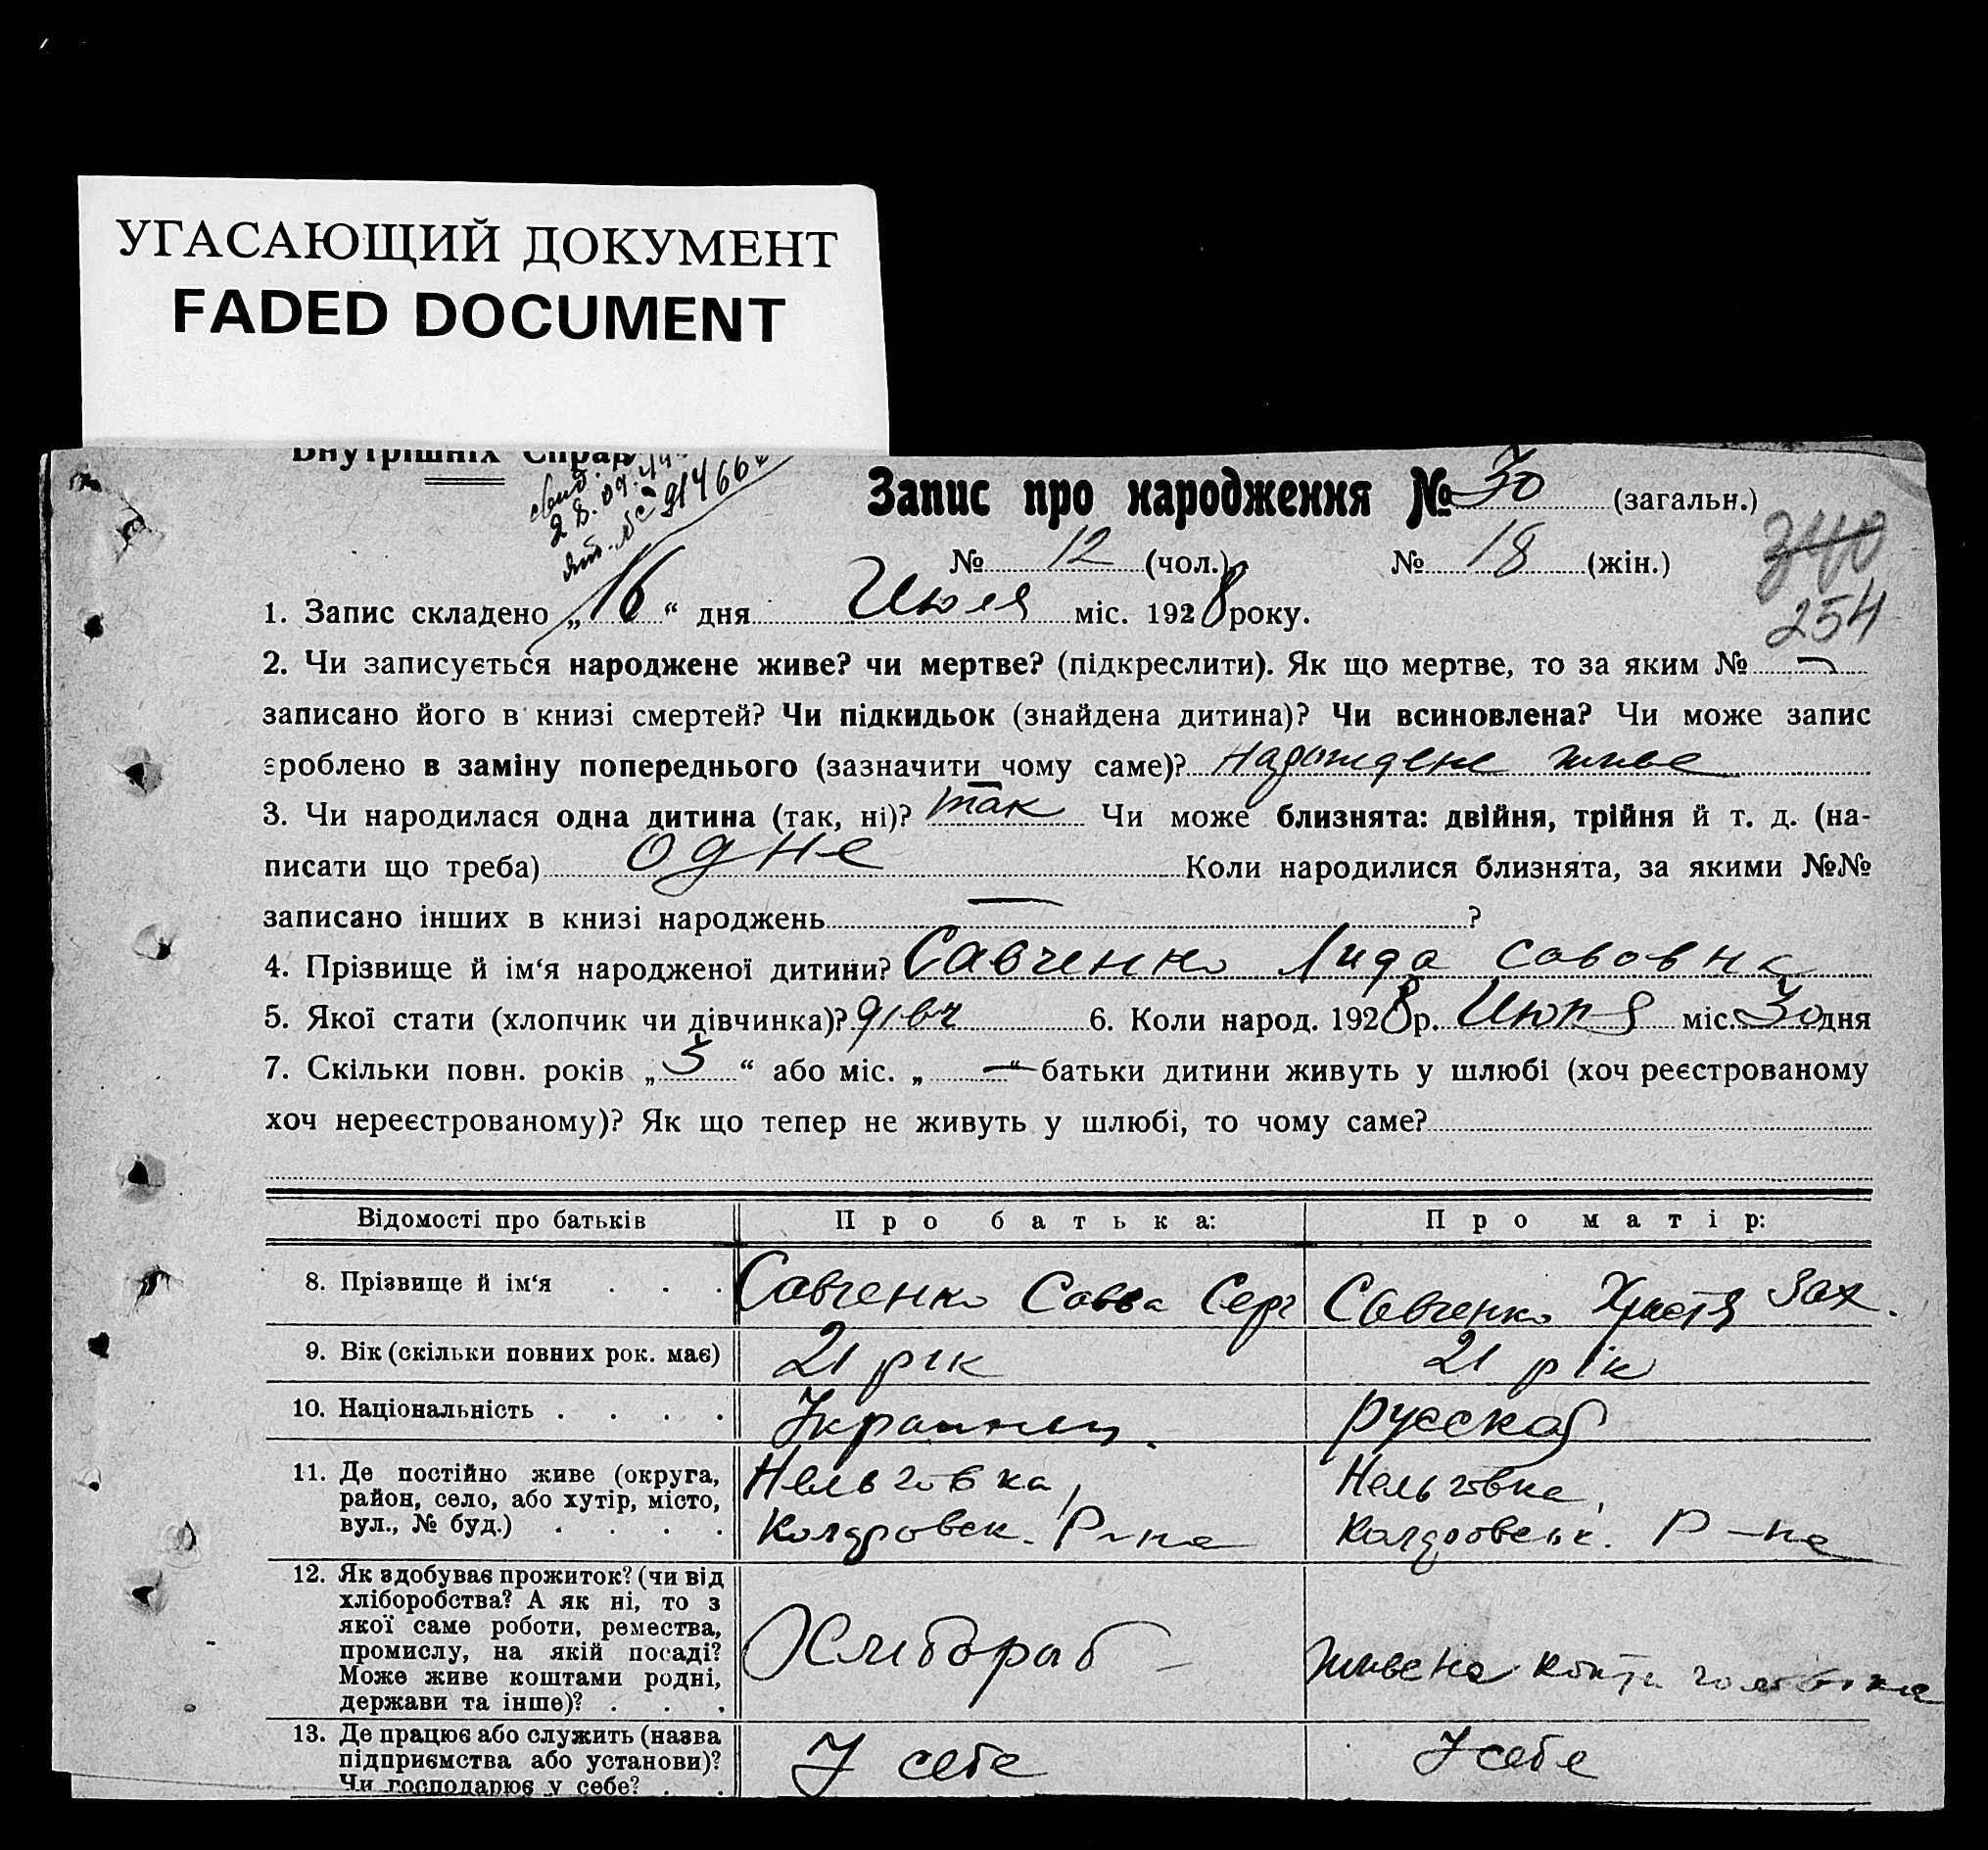 УГАСАЮЩИЙ ДОКУМЕНТ
FADED DOCUMENT
Внутрішніх Справ
28.09.44
914664
Запис про народження № 30 (загальн.)
№ 12 (чол.) № 18 (жін.)
340
254
1. Запис складено „16“ дня Июля міс. 1928 року.
2. Чи записується народжене живе? чи мертве? (підкреслити). Як що мертве, то за яким № —
записано його в книзі смертей? Чи підкидьок (знайдена дитина)? Чи всиновлена? Чи може запис
зроблено в заміну попереднього (зазначити чому саме)? народжене живе
3. Чи народилася одна дитина (так, ні)? так Чи може близнята: двійня, трійня й т. д. (на-
писати що треба) одне Коли народилися близнята, за якими №№
записано інших в книзі народжень — ?
4. Прізвище й ім‘я народженої дитини? Савченко Лида Савовна
5. Якої стати (хлопчик чи дівчинка)? дівч 6. Коли народ. 1928 р. Июня міс. 30 дня
7. Скільки повн. років „3“ або міс. „—“ батьки дитини живуть у шлюбі (хоч реєстрованому
хоч нереєстрованому)? Як що тепер не живуть у шлюбі, то чому саме?
Відомості про батьків Про батька: Про матір:
8. Прізвище й ім‘я . . . Савченко Савва Серг Савченко Христя Зах.
9. Вік (скільки повних рок. має) 21 рік 21 рік
10. Національність . . . . Украинец. русская
11. Де постійно живе (округа, Нельговка, Нельговка,
район, село, або хутір, місто,
вул., № буд.) . . . . Р-на Р-на
12. Як здобуває прожиток? (чи від
хліборобства? А як ні, то з
якої саме роботи, ремества, Хлибораб —
промислу, на якій посаді? живе на
Може живе коштами родні,
держави та інше)? . . .
13. Де працює або служить (назва У себе У себе
підприємства або установи)?
Чи господарює у себе? . .